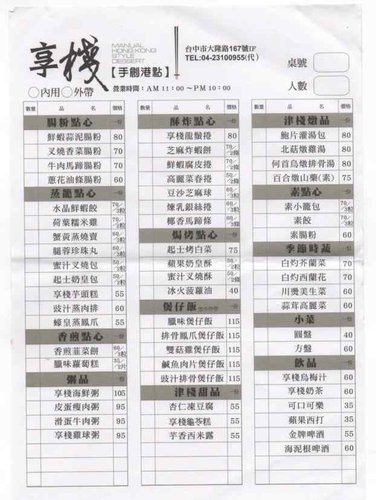 享棧
MANUAL
HONGKONG
STYLE
DESSERT
【手創港點】
台中市大隆路167號1F
TEL:04-23100955(代)
營業時間：AM 11:00 ～PM 10:00
桌號
人數
○內用○外帶
數量 品名 價格
腸粉點心
鮮蝦蒜泥腸粉 80
叉燒香菜腸粉 70
牛肉馬蹄腸粉 70
蔥花油條腸粉 60
蒸籠點心
水晶鮮蝦餃 70/3粒
荷葉糯米雞
蟹黃蒸燒賣
腿蓉珍珠丸
蜜汁叉燒包
起士奶皇包
享棧芋頭糕 55
豉汁蒸肉排 60
蠔皇蒸鳳爪 55
香煎點心
香煎韮菜餅
臘味蘿蔔糕
粥品
享棧海鮮粥 105
皮蛋瘦肉粥 95
滑蛋牛肉粥 95
享棧雞球粥 95
數量 品名 價格
酥炸點心
享棧龍鬚捲 80
芝麻炸蝦餅
鮮蝦腐皮捲
高麗菜春捲
豆沙芝麻球
煉乳銀絲捲
椰香馬蹄條
焗烤點心
起士烤白菜 75
蘋果奶皇酥
蜜汁叉燒酥
冰火菠蘿油 40
煲仔飯
臘味煲仔飯 115
排骨鳳爪煲仔飯 115
雙菇雞煲仔飯 115
鹹魚肉片煲仔飯 115
豉汁排骨煲仔飯 115
津棧甜品
杏仁凍豆腐 55
享棧龜苓糕 55
芋香西米露 55
數量 品名 價格
津棧燉品
鮑片灌湯包 80
北菇燉雞湯 80
何首烏燉排骨湯 80
百合燉山藥(素) 75
素點心
素小籠包
素餃
素腸粉 60
季節時蔬
白灼芥蘭菜 70
白灼西蘭花 70
川燙美生菜 60
蒜茸高麗菜 60
小菜
圓盤 60
方盤 40
飲品
享棧烏梅汁 60
享棧奶茶 60
可口可樂 35
蘋果西打 35
金牌啤酒 55
海泥根啤酒 60